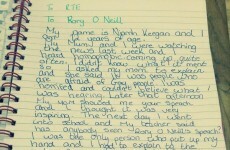 To RTE
To Rory O'Neill
My name is Niamh Keegan and I
am 14 years of age.
My Mum and I were watching
the news last week and the
word homophobic coming up quite
often. I didn't know what it meant
so I asked my mum to explain
and she said its was people who
are afraid of gay people. I was
horrified and couldn't believe what I
was hearing later that afternoon
My mum showed me your speech
and I thought it was very
inspiring. The next day I went
into school and my teacher said
has anybody seen Rory O'Neills speech
I was the only person to put up my
hand and I had to explain to the